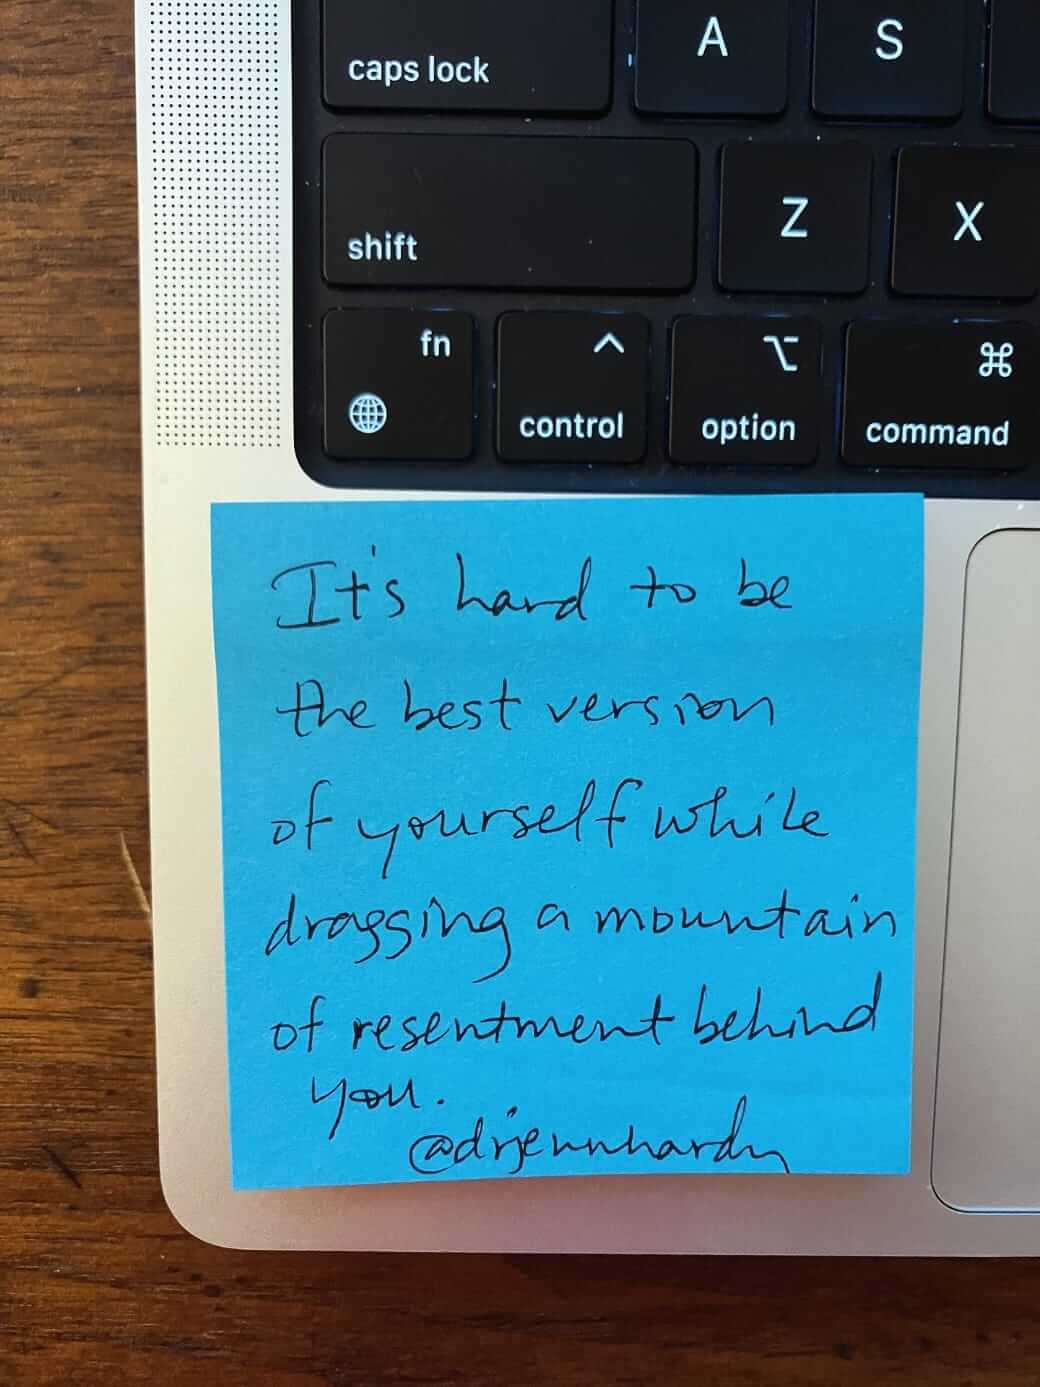 caps lock A S
shift Z X
fn ^ ⌥ ⌘
control option command
It's hard to be
the best version
of yourself while
dragging a mountain
of resentment behind
you.
@drjennhardy